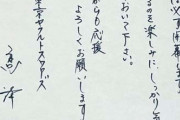 は必ず開幕します
るのを楽しみに、しっかり
おいて下さい。
からも応援
よろしくお願いします
東京ヤクルトスワローズ
高津